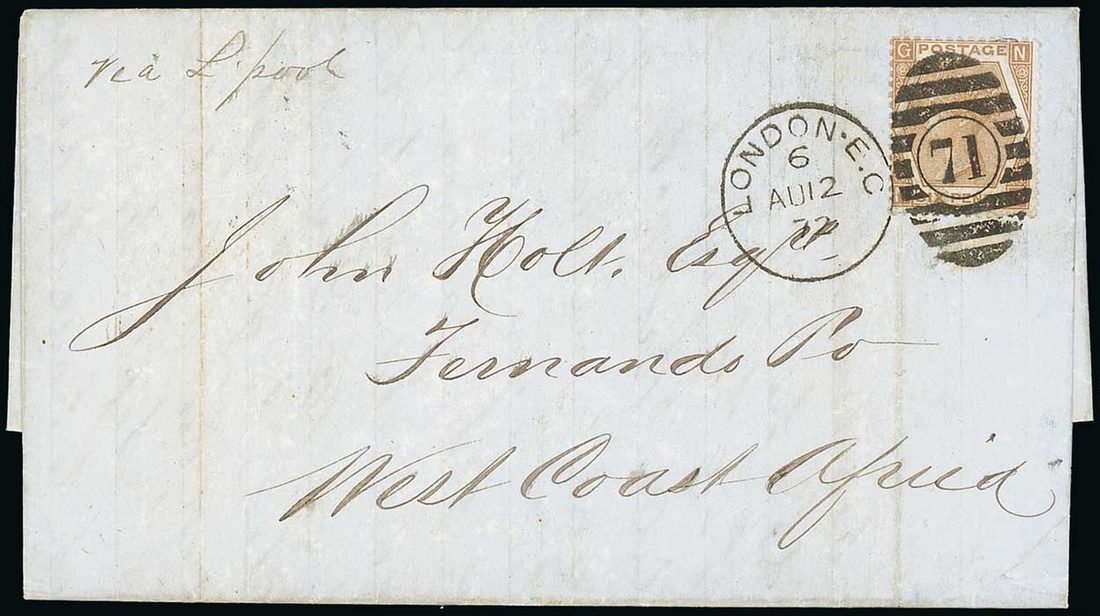 via L'pool
G POSTAGE N
71
LONDON·E.C
6
AU12
72
John Holt. Esqre
Fernando Po
West Coast Africa